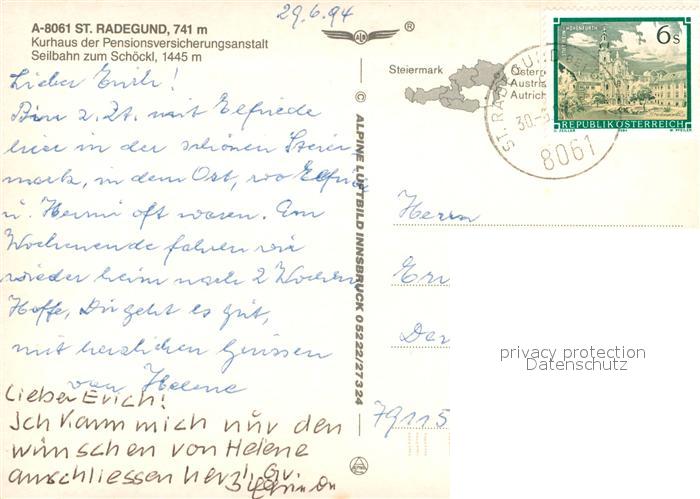 29.6.94
A-8061 ST. RADEGUND, 741 m
Kurhaus der Pensionsversicherungsanstalt
Seilbahn zum Schöckl, 1445 m
Lieber Erich!
Bin z. Zt. mit Elfriede
hier in der schönen Steier
mark, in dem Ort, wo Elfriede
u. Hermi oft waren. Am
Wochenende fahren wir
wieder heim nach 2 Wochen
Hoffe, Dir geht es gut,
mit herzlichen Grüssen
von Helene
Lieber Erich!
Ich kann mich nur den
wünschen von Helene
anschliessen herzl. Gr.
© ALPINE LUFTBILD INNSBRUCK 05222/27324
ALPINE
®
Steiermark
Österre
Austria
Autrich
6s
STIFT REIN-HOHENFURTH
REPUBLIK ÖSTERREICH
O. ZEILER 1984 W. PFEILER
ST. RADEGUND
30.-6.
8061
Herrn
Er
Der
79115
privacy protection
Datenschutz